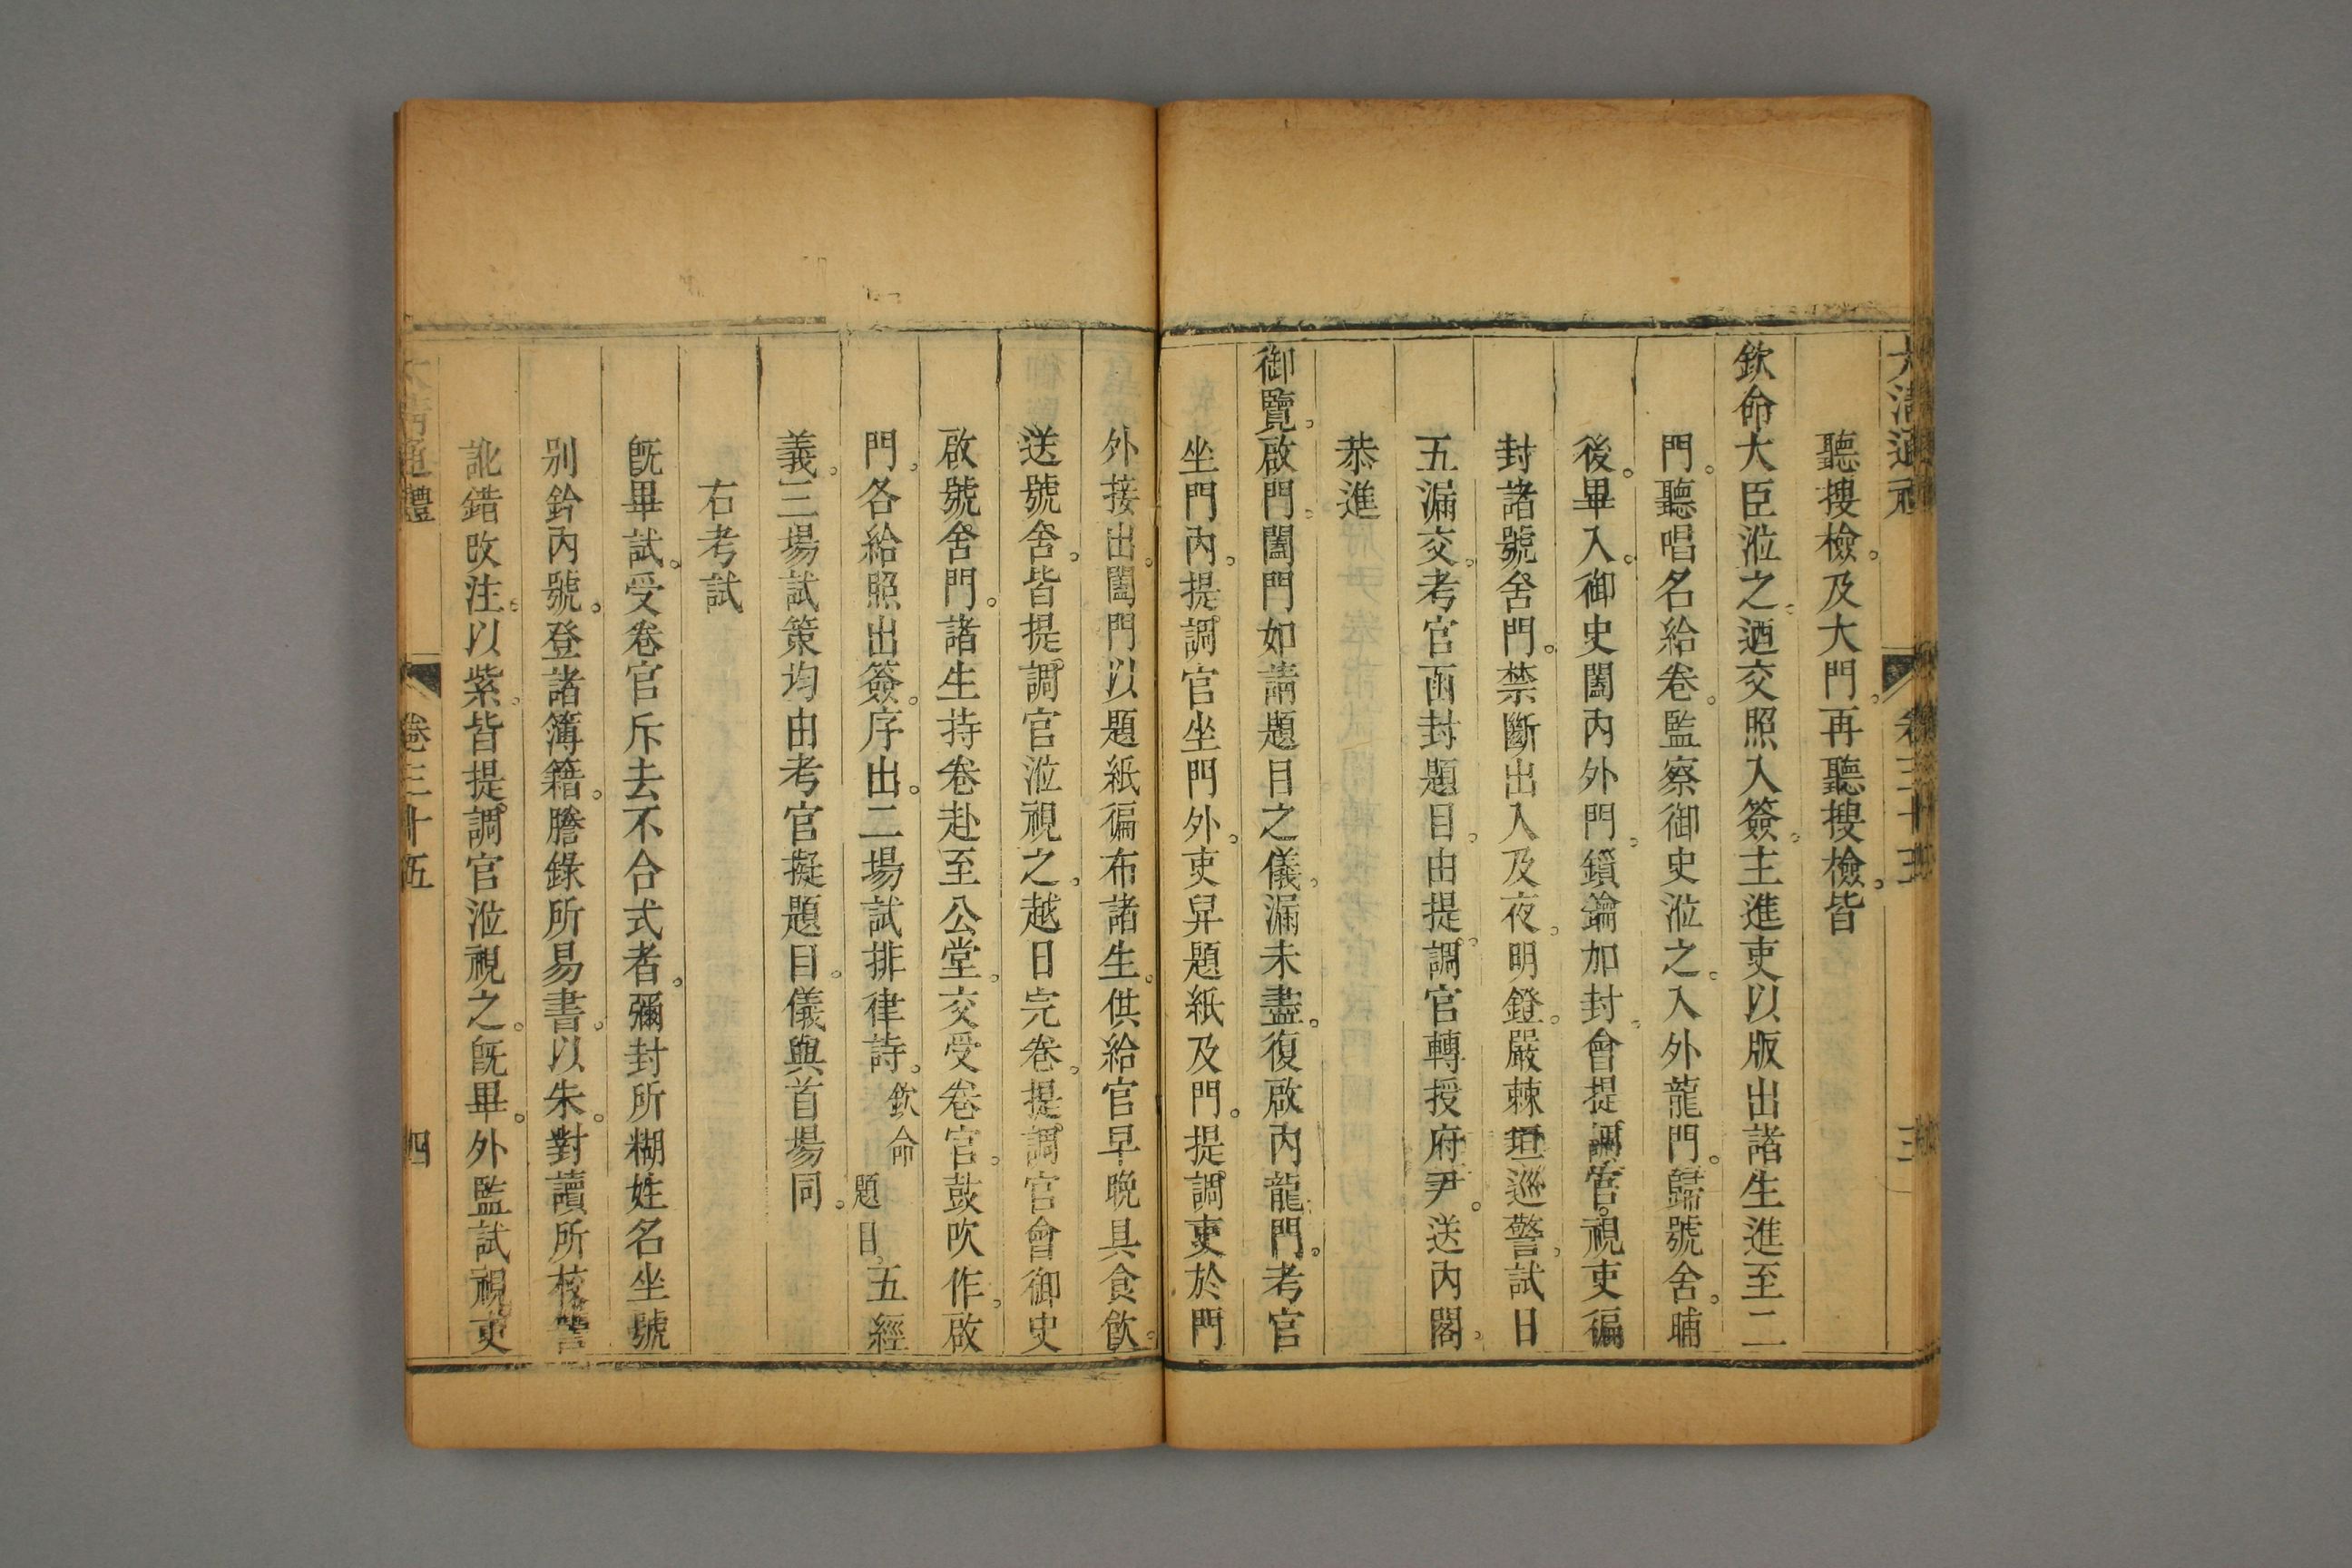 大清通禮 卷三十五 三
聽搜檢。及大門。再聽搜檢。皆
欽命大臣涖之。迺交照入簽。主進吏以版出諸生進至二
門。聽唱名給卷。監察御史涖之。入外龍門。歸號舍。晡
後。畢入。御史闔內外門。鎖鑰加封。會提調官。視吏徧
封諸號舍門。禁斷出入及夜。明鐙。嚴棘垣巡警。試日
五漏交。考官函封題目。由提調官轉授府尹。送內閣。
恭進
御覽。啟門闔門如請題目之儀。漏未盡。復啟內龍門。考官
坐門內。提調官坐門外。吏舁題紙及門。提調吏於門
外接出。闔門以題紙徧布諸生。供給官早晚具食飲。
送號舍。皆提調官涖視之。越日完卷。提調官會御史
啟號舍門。諸生持卷赴至公堂。交受卷官。鼓吹作。啟
門。各給照出簽。序出。二場試排律詩。欽命題目。五經
義。三場試策均由考官擬題目。儀與首場同。
右考試
既畢試。受卷官斥去不合式者。彌封所糊姓名坐號
別鈐內號。登諸簿籍。謄錄所易書。以朱。對讀所校讐
訛錯改注。以紫。皆提調官涖視之。既畢。外監試視吏
大清通禮 卷三十五 四